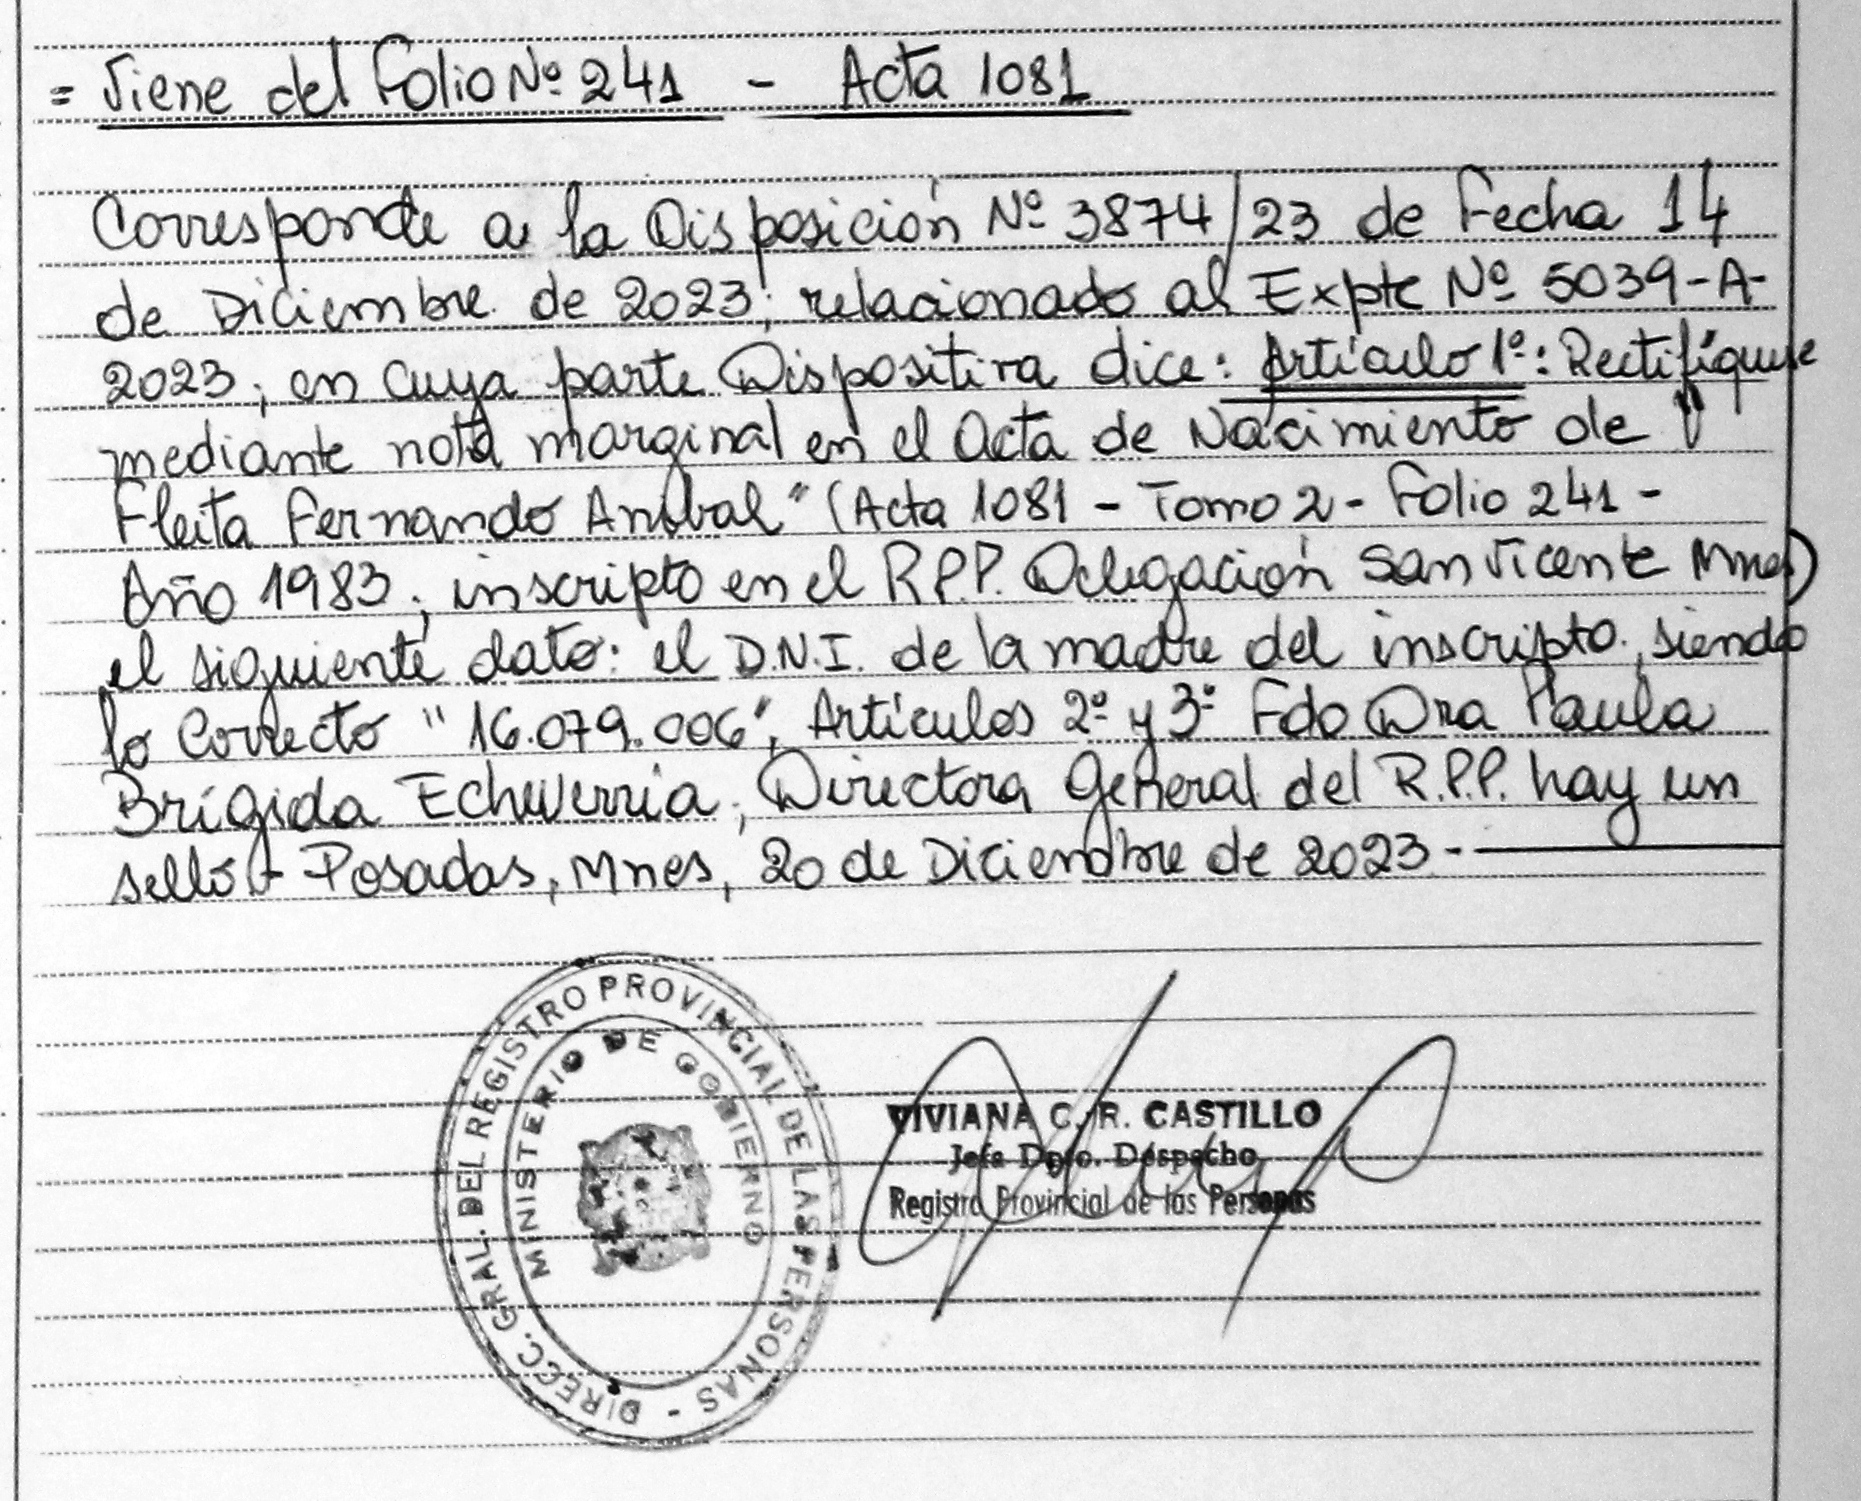 = Viene del Folio Nº 241 - Acta 1081
Corresponde a la Disposición Nº 3874/23 de Fecha 14
de Diciembre de 2023; relacionado al Expte Nº 5039-A-
2023; en cuya parte Dispositiva dice: Artículo 1º: Rectifíquese
mediante nota marginal en el Acta de Nacimiento de "
Fleita Fernando Anibal" (Acta 1081 - Tomo 2 - Folio 241 -
Año 1983; inscripto en el R.P.P. Delegación San Vicente Mnes)
el siguiente dato: el D.N.I. de la madre del inscripto, siendo
lo Correcto "16.079.006", Artículos 2º y 3º Fdo Dra Paula
Brígida Echeverria, Directora General del R.P.P. hay un
sello - Posadas, Mnes, 20 de Diciembre de 2023 -
DIRECC. GRAL. DEL REGISTRO PROVINCIAL DE LAS PERSONAS -
MINISTERIO DE GOBIERNO
VIVIANA C. R. CASTILLO
Jefa Dpto. Despacho
Registro Provincial de las Personas